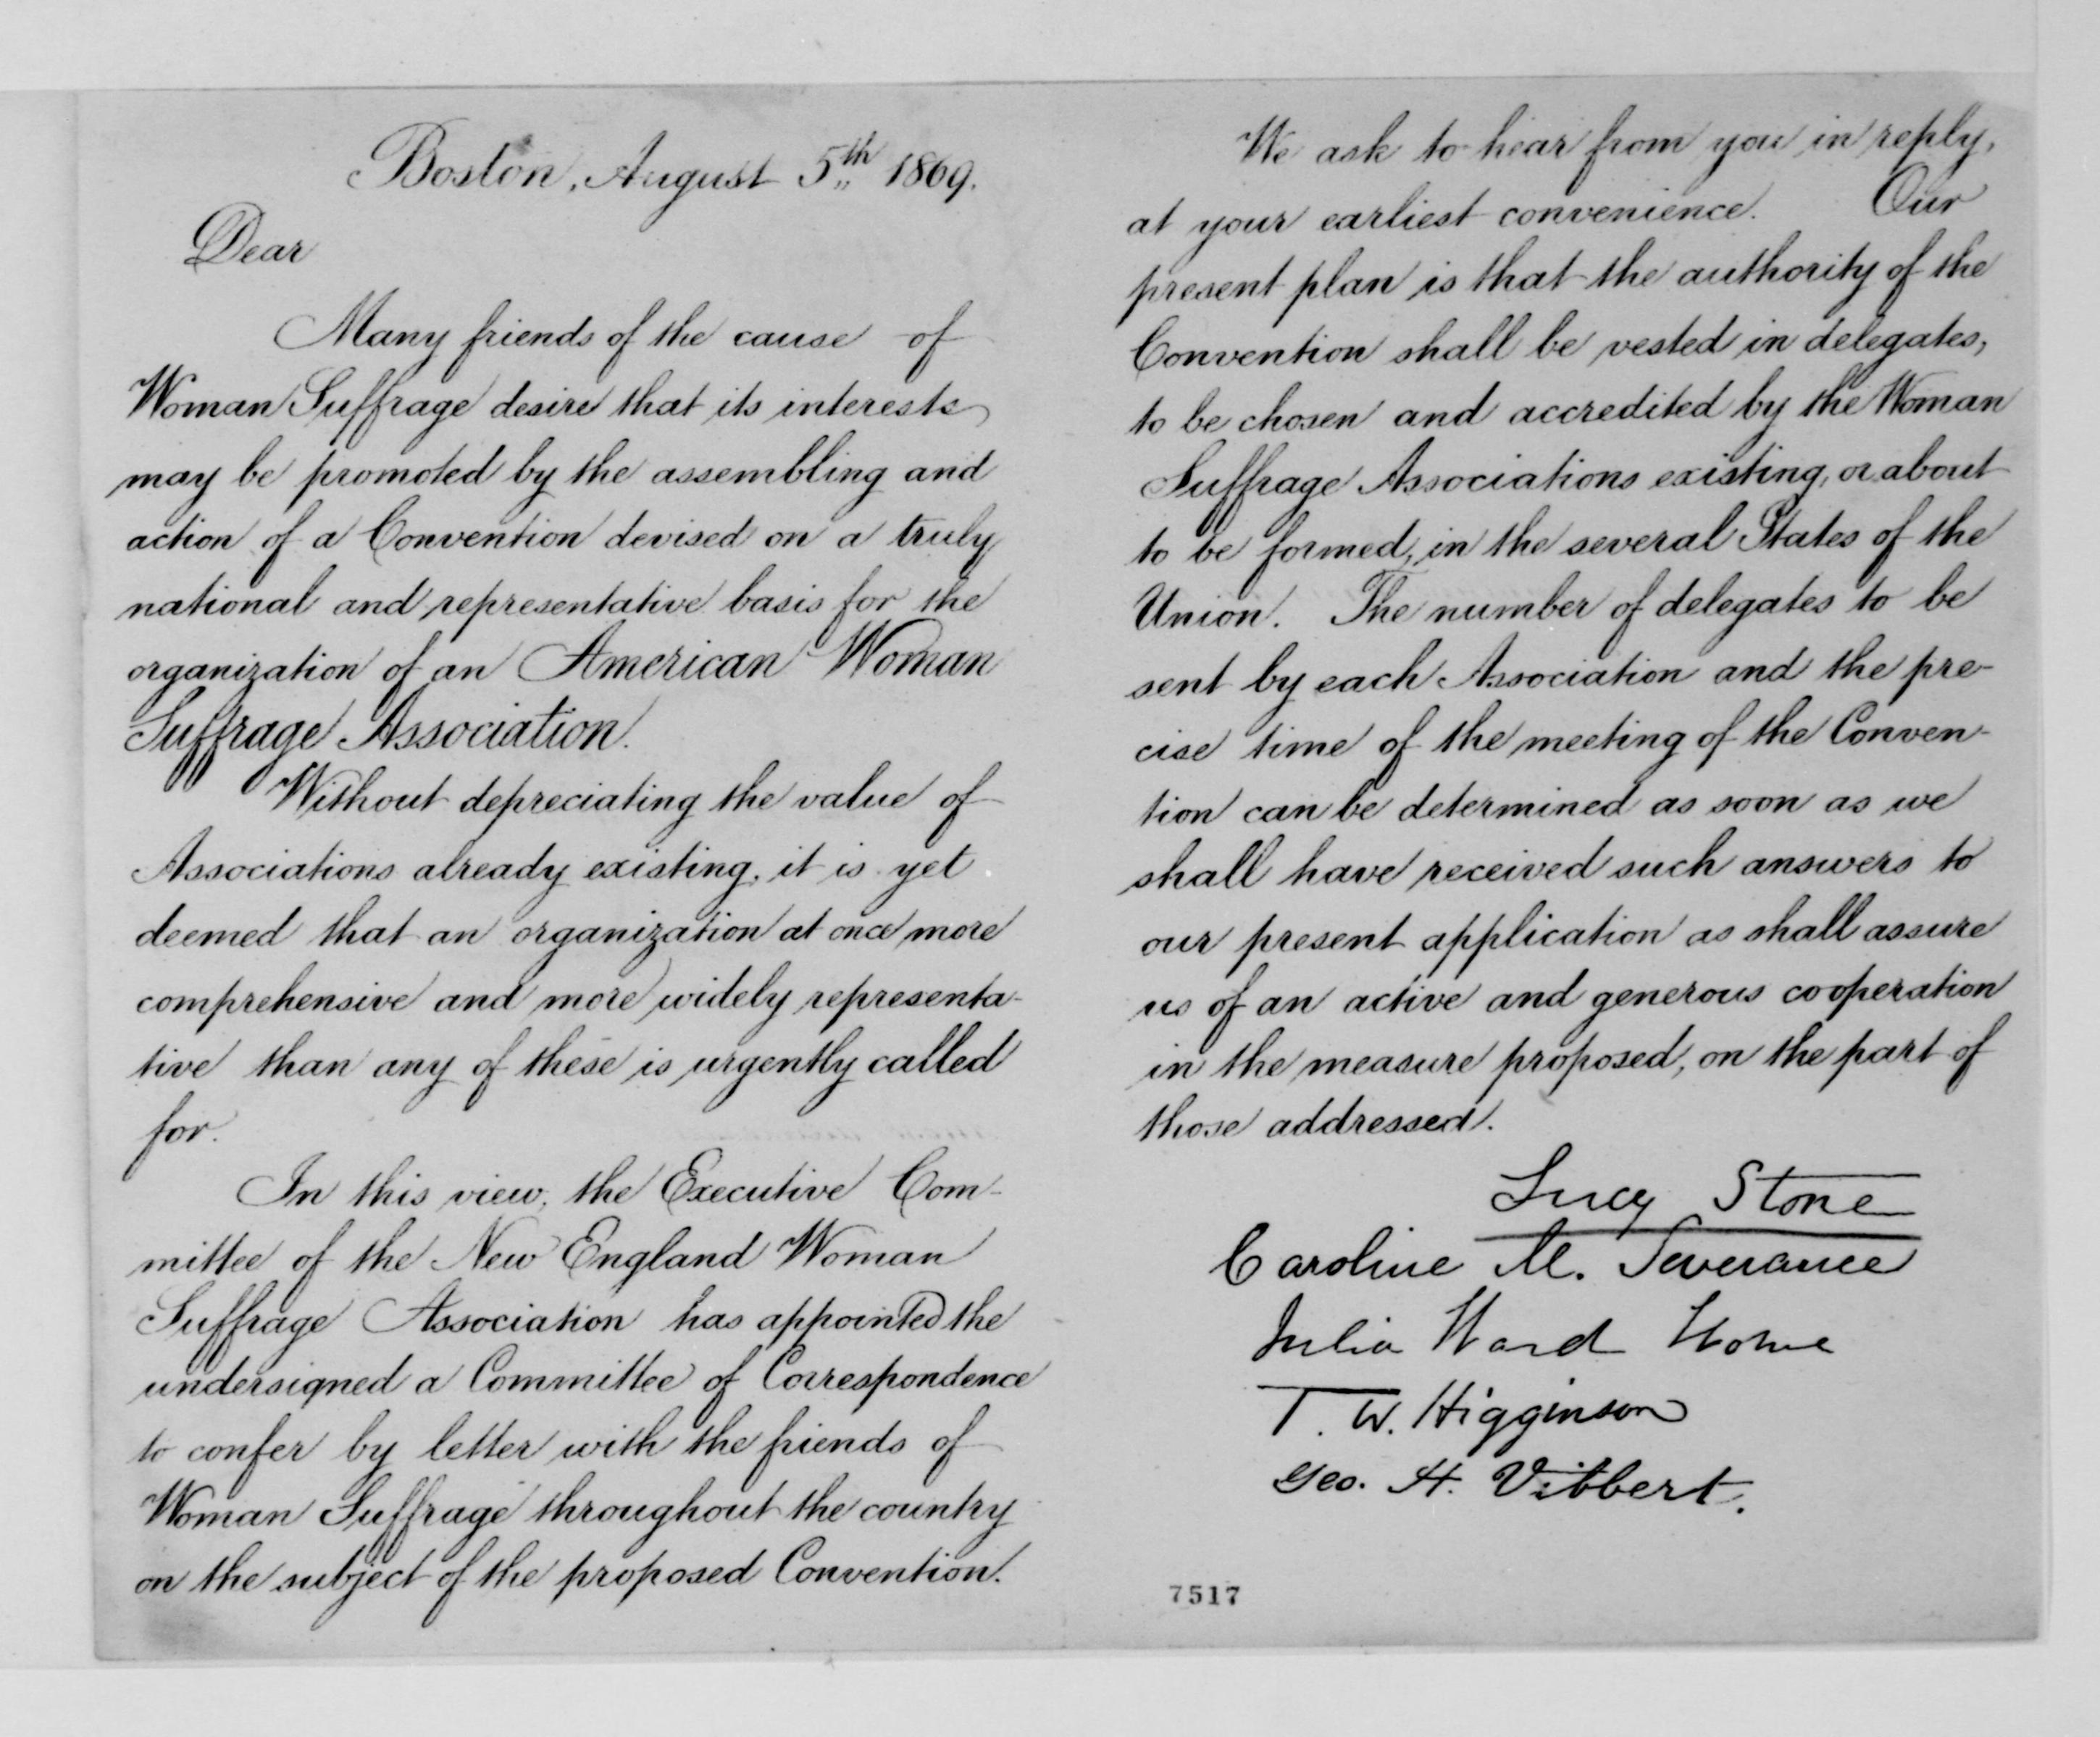 Boston, August 5th 1869.
Dear
Many friends of the cause of
Woman Suffrage desire that its interests
may be promoted by the assembling and
action of a Convention devised on a truly
national and representative basis for the
organization of an American Woman
Suffrage Association.
Without depreciating the value of
Associations already existing, it is yet
deemed that an organization at once more
comprehensive and more widely representa-
tive than any of these is urgently called
for.
In this view, the Executive Com-
mittee of the New England Woman
Suffrage Association has appointed the
undersigned a Committee of Correspondence
to confer by letter with the friends of
Woman Suffrage throughout the country
on the subject of the proposed Convention.
We ask to hear from you in reply,
at your earliest convenience. Our
present plan is that the authority of the
Convention shall be vested in delegates,
to be chosen and accredited by the Woman
Suffrage Associations existing, or about
to be formed, in the several States of the
Union. The number of delegates to be
sent by each Association and the pre-
cise time of the meeting of the Conven-
tion can be determined as soon as we
shall have received such answers to
our present application as shall assure
us of an active and generous cooperation
in the measure proposed, on the part of
those addressed.
Lucy Stone
Caroline M. Severance
Julia Ward Howe
T. W. Higginson
Geo. H. Vibbert.
7517